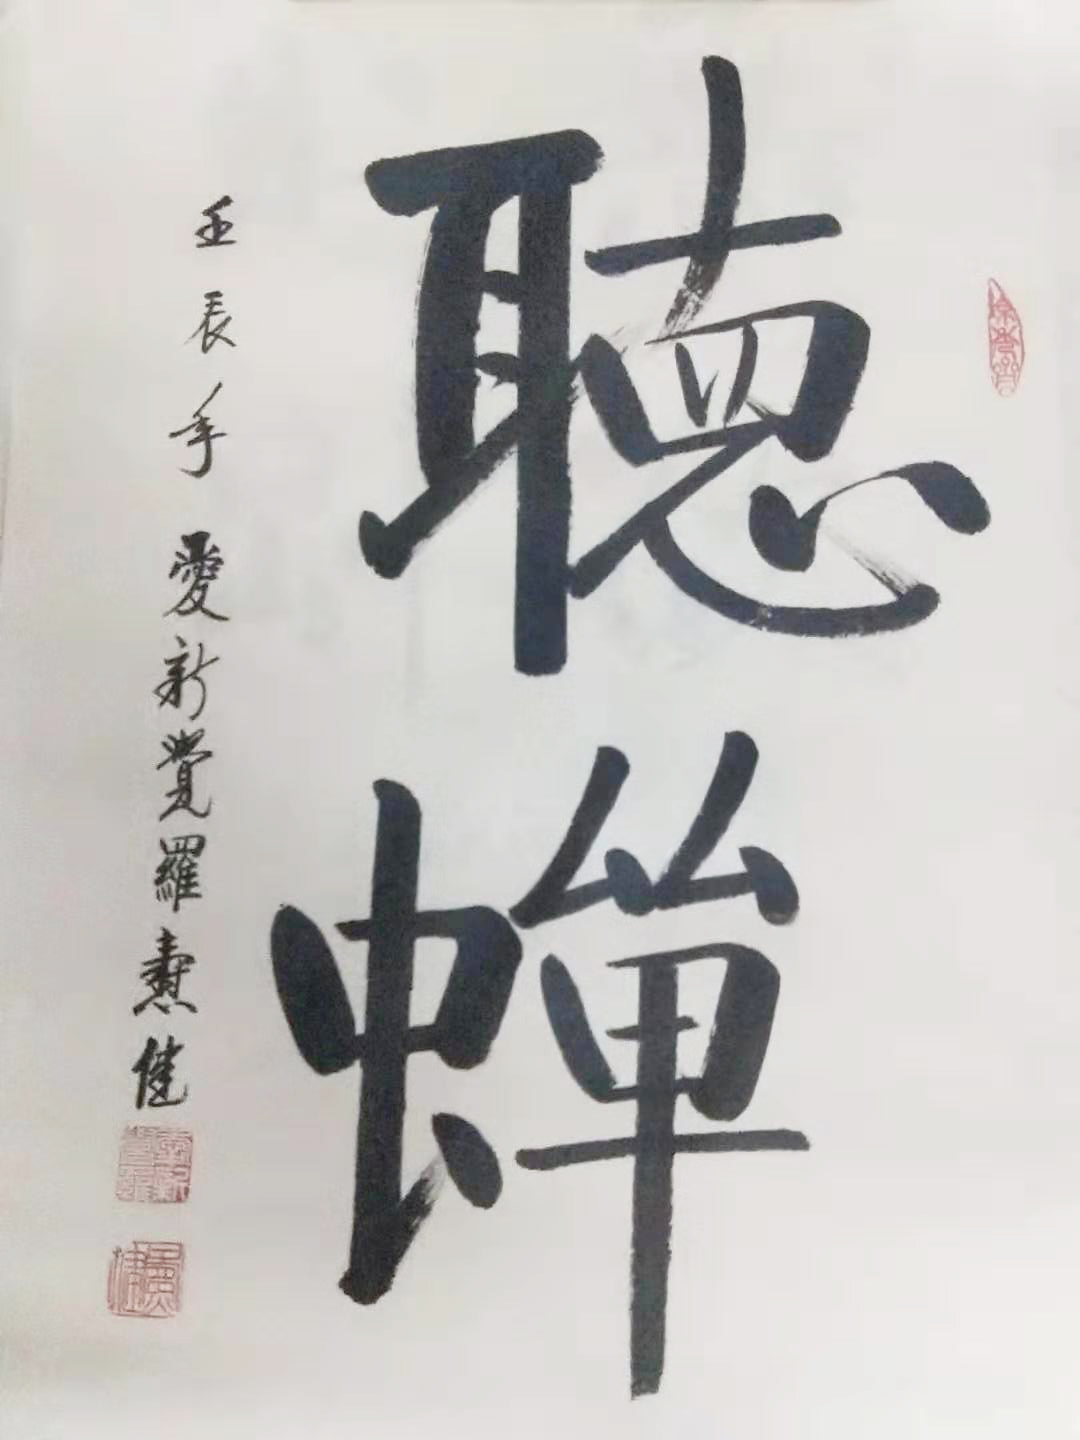 聽蟬
壬辰年愛新覺羅燾健